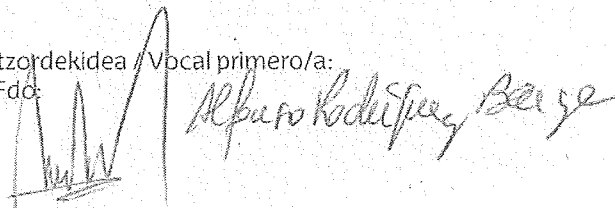 tzordekidea / Vocal primero/a:
Fdo:
Alfonso Rodríguez Barge